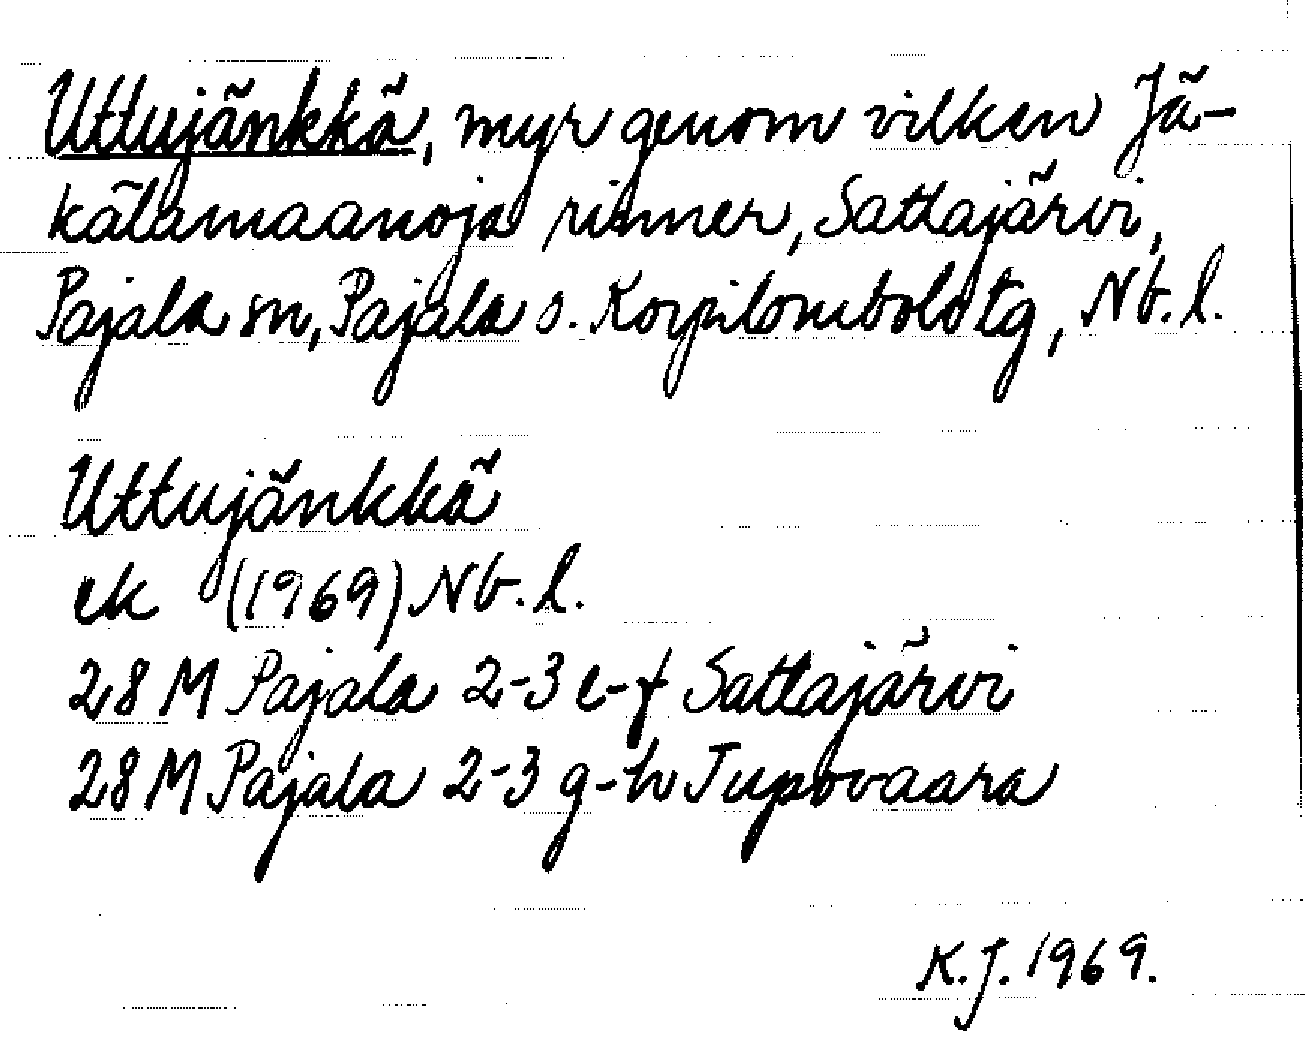 Uttujänkkä, myr genom vilken Jä-
kälämaanoja rinner, Sattajärvi,
Pajala sn, Pajala o. Korpilombolo tg, Nb. l.
Uttujänkkä
ek (1969) Nb. l.
28 M Pajala 2-3 e-f Sattajärvi
28 M Pajala 2-3 g-h Jupovaara
K.J. 1969.